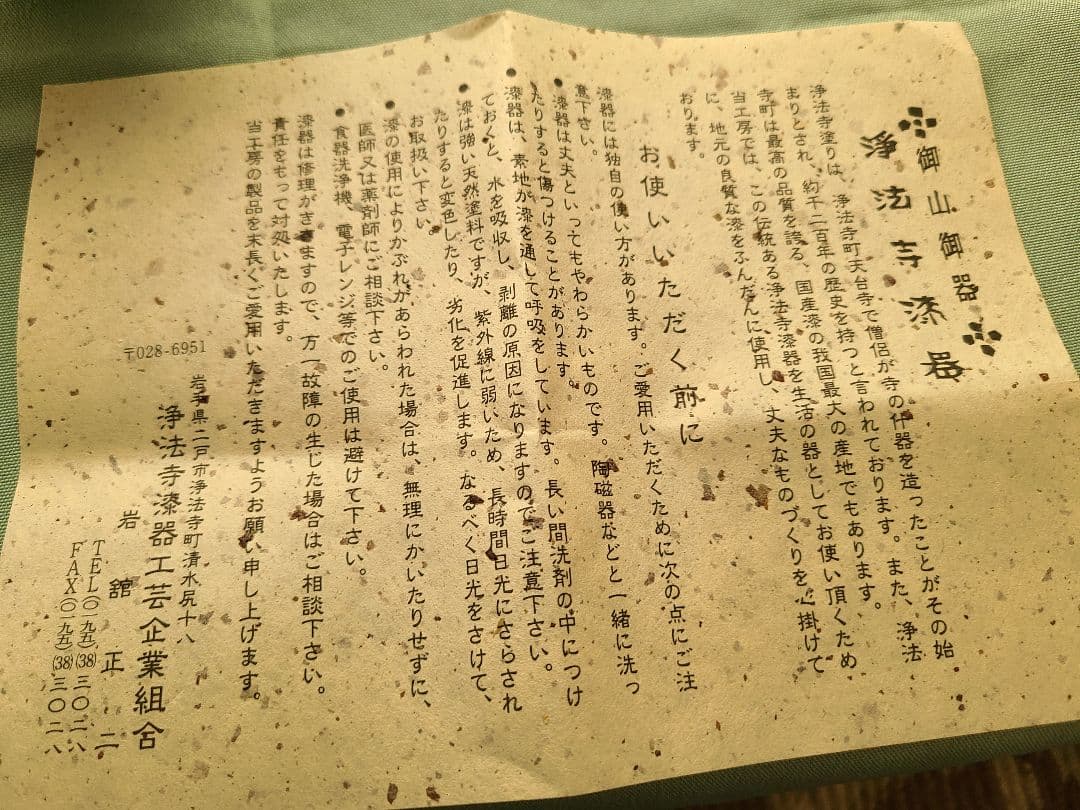 御山御器
浄法寺漆器
浄法寺塗りは、浄法寺町天台寺で僧侶が寺の什器を造ったことがその始
まりとされ、約千二百年の歴史を持つと言われております。また、浄法
寺町は最高の品質を誇る、国産漆の我国最大の産地でもあります。
当工房では、この伝統ある浄法寺漆器を生活の器としてお使い頂くため
に、地元の良質な漆をふんだんに使用し、丈夫なものづくりを心掛けて
おります。
お使いいただく前に
漆器には独自の使い方があります。ご愛用いただくために次の点にご注
意下さい。
●漆器は丈夫といってもやわらかいものです。陶磁器などと一緒に洗っ
たりすると傷つけることがあります。
●漆器は、素地が漆を通して呼吸をしています。長い間洗剤の中につけ
ておくと、水を吸収し、剥離の原因になりますのでご注意下さい。
●漆は強い天然塗料ですが、紫外線に弱いため、長時間日光にさらされ
たりすると変色したり、劣化を促進します。なるべく日光をさけて、
お取扱い下さい。
●漆の使用によりかぶれがあらわれた場合は、無理にかいたりせずに、
医師又は薬剤師にご相談下さい。
●食器洗浄機 電子レンジ等でのご使用は避けて下さい。
漆器は修理がききますので、万一故障の生じた場合はご相談下さい。
責任をもって対処いたします。
当工房の製品を末長くご愛用いただきますようお願い申し上げます。
〒028-6951
岩手県二戸市浄法寺町清水尻十八
浄法寺漆器工芸企業組合
岩舘正二
TEL(〇一九五)(38)三〇二八
FAX(〇一九五)(38)三〇二八